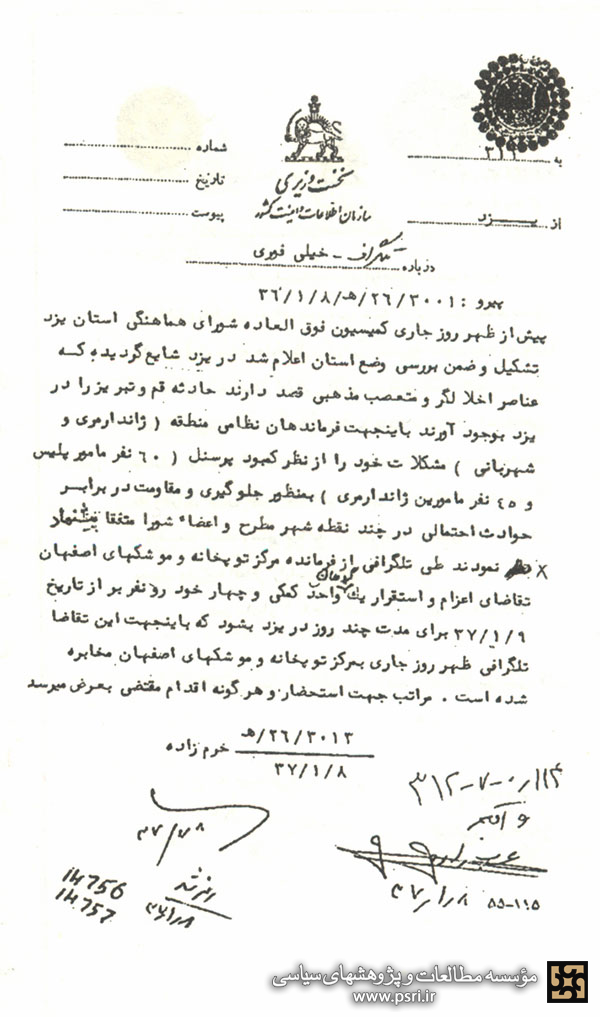 به ۳۱۲
شماره
نخست وزیری
تاریخ
سازمان اطلاعات و امنیت کشور
از یزد
پیوست
تلگراف - خیلی فوری
درباره
پیرو : ۲۶/۳۰۰۱/هـ/۳۶/۱/۸
پیش از ظهر روز جاری کمیسیون فوق العاده شورای هماهنگی استان یزد
تشکیل و ضمن بررسی وضع استان اعلام شد در یزد شایع گردیده که
عناصر اخلالگر و متعصب مذهبی قصد دارند حادثه قم و تبریز را در
یزد بوجود آورند باینجهت فرماندهان نظامی منطقه ( ژاندارمری و
شهربانی ) مشکلات خود را از نظر کمبود پرسنل ( ۶۰ نفر مامور پلیس
و ۴۵ نفر مامورین ژاندارمری ) بمنظور جلوگیری و مقاومت در برابر
حوادث احتمالی در چند نقطه شهر مطرح و اعضاء شورا متفقا پیشنهاد
نمودند طی تلگرافی از فرمانده مرکز توپخانه و موشکهای اصفهان
تقاضای اعزام و استقرار یک واحد کمکی و چهار خود رو نفربر از تاریخ
۳۷/۱/۹ برای مدت چند روز در یزد بشود که باینجهت این تقاضا
تلگرافی ظهر روز جاری بمرکز توپخانه و موشکهای اصفهان مخابره
شده است . مراتب جهت استحضار و هرگونه اقدام مقتضی بعرض میرسد
۲۶/۳۰۱۳/هـ
خرم زاده
۳۷/۱/۸
۵۵-۱۱۵
14756
14757
مؤسسه مطالعات و پژوهشهای سیاسی
www.psri.ir